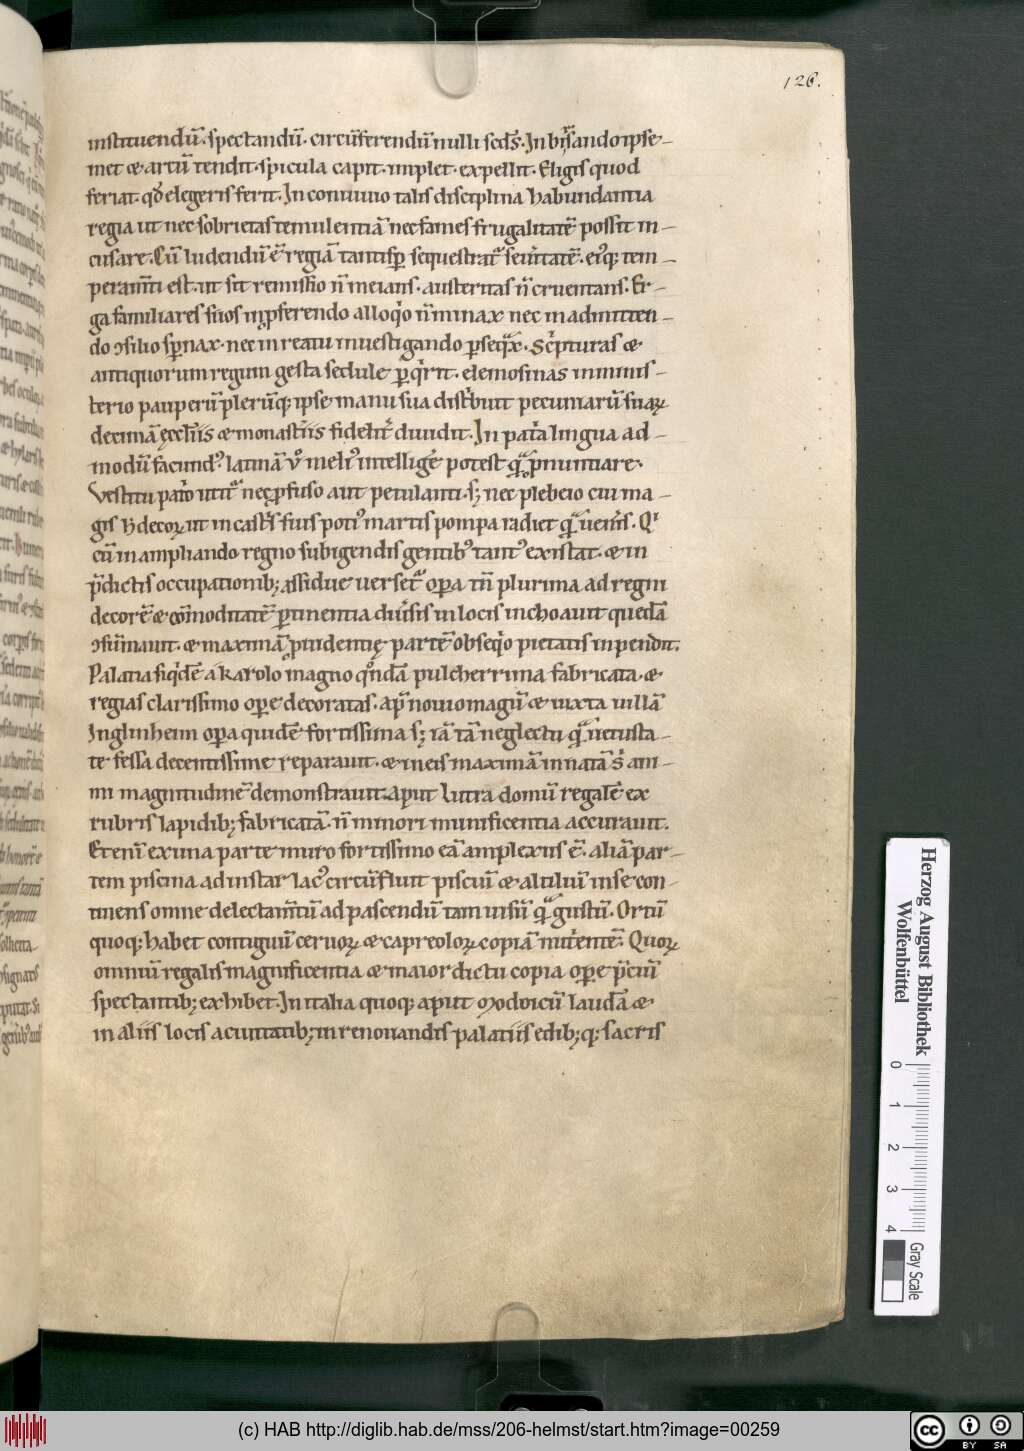 126.
instituendū. spectandū. circūferendū nulli scd̄s. In birsando ipse-
met & artū tendit. spicula capit. implet. expellit. Eligis quod
feriat. qd̄ elegeris ferit. In conviuio talis disciplina habundantia
regia ut nec sobrietas temulentiā nec fames frugalitatē possit in-
cusare. Cū ludendū ē regiā tantisꝑ sequestrat seuitatē. eiꝰq; tem-
peram̄ti est. ut sit remissio n̄ meians. austeritas n̄ cruentans. Er-
ga familiares suos in ꝓferendo alloqⁱo n̄ minax nec in admitten-
do ↄsilio sꝑnax. nec in reatu inuestigando ꝑseqᵃx. Scⁱpturas &
antiquorum regum gesta sedule ꝑqⁱrit. elemosinas in minis-
terio pauperū plerūq; ipse manu sua distⁱbuit pecuniarū suaꝝ
decimā ęccl̄iis & monast̄iis fidelit̄ diuidit. In patⁱa lingua ad-
modū facundꝰ. latinā v̊ meliꝰ intelligē potest qᵃ ꝓnuntiare.
Vestitu patⁱo utitᵉ nec ꝓfuso aut petulanti. s; nec plebeio cui ma-
gis h̄ decoꝝ ut in castⁱs suis potiꝰ martis pompa radiet qᵃ ueneⁱs. Qⁱ
cū in ampliando regno subigendis gentibꝰ tantꝰ existat. & in
p̄dictis occupationib; assidue uersetᵉ oꝑa tn̄ plurima ad regni
decorē & com̄oditatē ꝑtinentia diūsis in locis inchoauit quedā
ↄsūmauit. & maximā ꝓuidentię partē obseqⁱo pietatis inpendit.
Palatia siqⁱdē a karolo magno qͦndā pulcherrima fabricata. &
regias clarissimo oꝑe decoratas. ap̄ nouiomagū & iuxta uillā
Inglinheim oꝑa quidē fortissima s; iā tā neglectu qᵃ uetusta-
te fessa decentissime reparauit. & in eis maximā innatā sⁱ ani-
mi magnitudinē demonstrauit. aput Lutra domū regalē ex
rubris lapidib; fabricatā. n̄ minori munificentia accurauit.
Etenī ex una parte muro fortissimo eā amplexus ē. aliā par-
tem piscina ad instar lacꝰ circūfluit pisciū & altiliū in se con-
tinens omne delectam̄tū ad pascendū tam uisū qᵃ gustū. Ortū
quoq; habet contiguū ceruoꝝ & capreoloꝝ copiā nutⁱentē. Quoꝝ
omniū regalis magnificentia & maior dictu copia oꝑe p̄ciū
spectantib; exhibet. In italia quoq; aput modoicū laudā &
in aliis locis ac ciuitatib; in renouandis palatiis edib;q; sacris
Herzog August Bibliothek
Wolfenbüttel
0 1 2 3 4
Gray Scale
(c) HAB http://diglib.hab.de/mss/206-helmst/start.htm?image=00259
cc BY SA